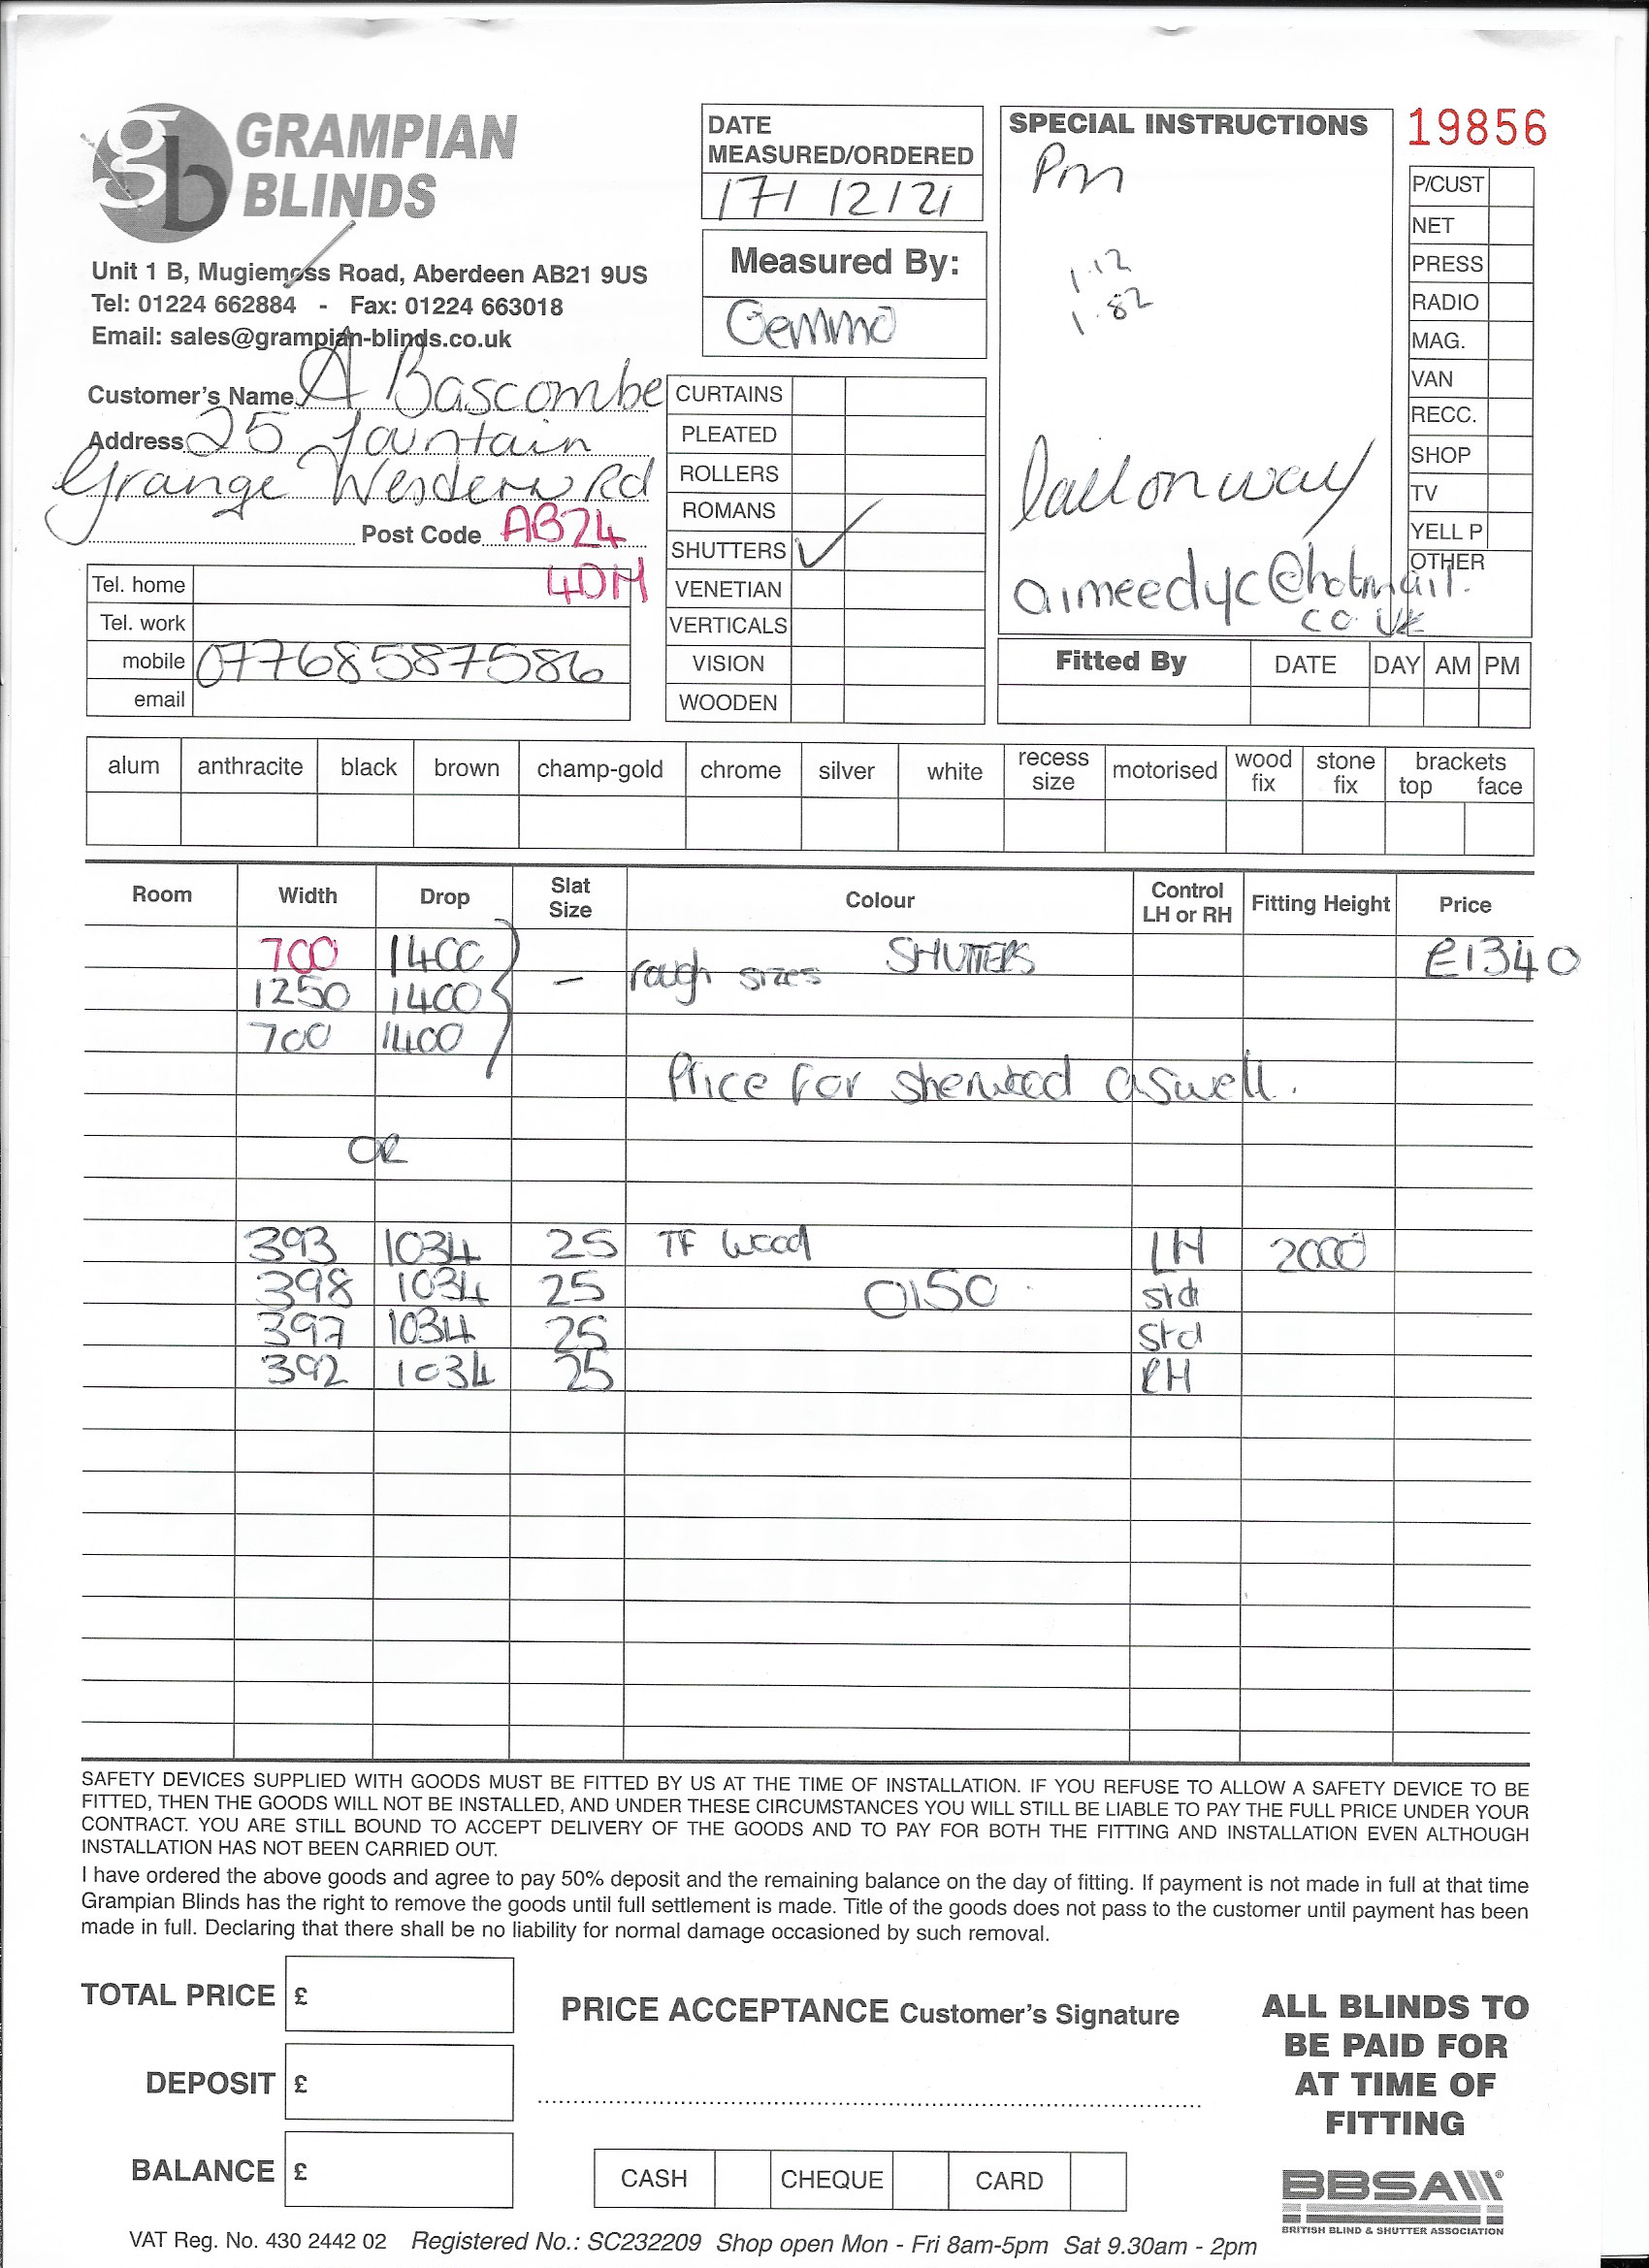 GRAMPIAN
BLINDS
Unit 1 B, Mugiemoss Road, Aberdeen AB21 9US
Tel: 01224 662884 - Fax: 01224 663018
Email: sales@grampian-blinds.co.uk
DATE
MEASURED/ORDERED
17/ 12/21
Measured By:
Gemma
SPECIAL INSTRUCTIONS
Pm
1.12
1.82
call on way
aimeedyc@hotmail.
co.uk
19856
P/CUST
NET
PRESS
RADIO
MAG.
VAN
RECC.
SHOP
TV
YELL P
OTHER
Customer's Name A Bascombe
Address 25 fountain
Grange Western Rd
Post Code AB24
4DH
Tel. home
Tel. work
mobile 07768587586
email
CURTAINS
PLEATED
ROLLERS
ROMANS
SHUTTERS ✓
VENETIAN
VERTICALS
VISION
WOODEN
Fitted By DATE DAY AM PM
alum anthracite black brown champ-gold chrome silver white recess size motorised wood fix stone fix brackets top face
Room Width Drop Slat Size Colour Control LH or RH Fitting Height Price
700 1400 – rough sizes SHUTTERS £1340
1250 1400
700 1400
Price for sherwood aswell.
OR
393 1034 25 TF Wood LH 2000
398 1034 25 0150 std
397 1034 25 std
392 1034 25 RH
SAFETY DEVICES SUPPLIED WITH GOODS MUST BE FITTED BY US AT THE TIME OF INSTALLATION. IF YOU REFUSE TO ALLOW A SAFETY DEVICE TO BE
FITTED, THEN THE GOODS WILL NOT BE INSTALLED, AND UNDER THESE CIRCUMSTANCES YOU WILL STILL BE LIABLE TO PAY THE FULL PRICE UNDER YOUR
CONTRACT. YOU ARE STILL BOUND TO ACCEPT DELIVERY OF THE GOODS AND TO PAY FOR BOTH THE FITTING AND INSTALLATION EVEN ALTHOUGH
INSTALLATION HAS NOT BEEN CARRIED OUT.
I have ordered the above goods and agree to pay 50% deposit and the remaining balance on the day of fitting. If payment is not made in full at that time
Grampian Blinds has the right to remove the goods until full settlement is made. Title of the goods does not pass to the customer until payment has been
made in full. Declaring that there shall be no liability for normal damage occasioned by such removal.
TOTAL PRICE £
DEPOSIT £
BALANCE £
PRICE ACCEPTANCE Customer's Signature
CASH CHEQUE CARD
ALL BLINDS TO
BE PAID FOR
AT TIME OF
FITTING
BBSA
BRITISH BLIND & SHUTTER ASSOCIATION
VAT Reg. No. 430 2442 02 Registered No.: SC232209 Shop open Mon - Fri 8am-5pm Sat 9.30am - 2pm